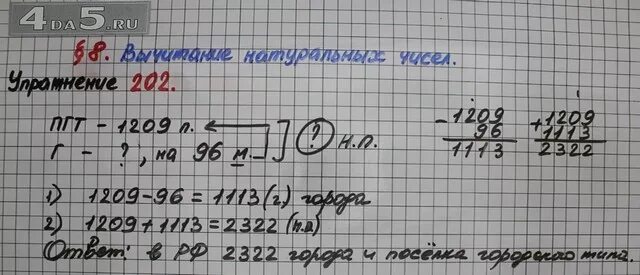 4DA5.RU
§ 8. Вычитание натуральных чисел.
Упражнение 202.
ПГТ - 1209 п.
Г - ?, на 96 м.
? н.п.
- 1209
96
1113
+ 1209
1113
2322
1) 1209 - 96 = 1113 (г.) города
2) 1209 + 1113 = 2322 (н.п)
Ответ: в РФ 2322 города и посёлка городского типа.